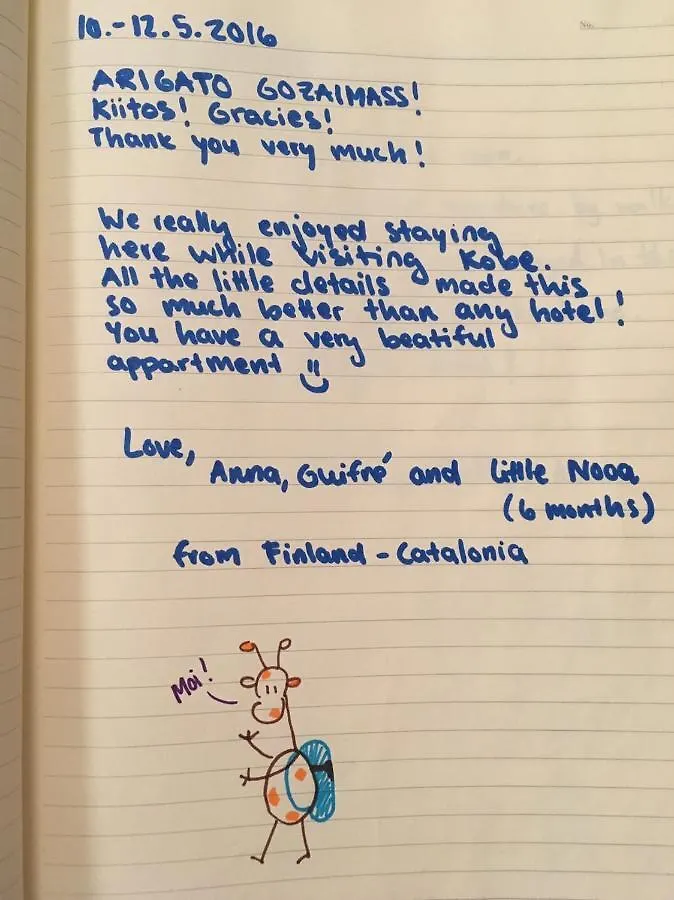 No.
10.-12.5.2016
ARIGATO GOZAIMASS!
Kiitos! Gracies!
Thank you very much!
We really enjoyed staying
here while visiting Kobe.
All the little details made this
so much better than any hotel!
You have a very beatiful
appartment
Love,
Anna, Guifré and little Nooa
(6 months)
from Finland-Catalonia
Moi!